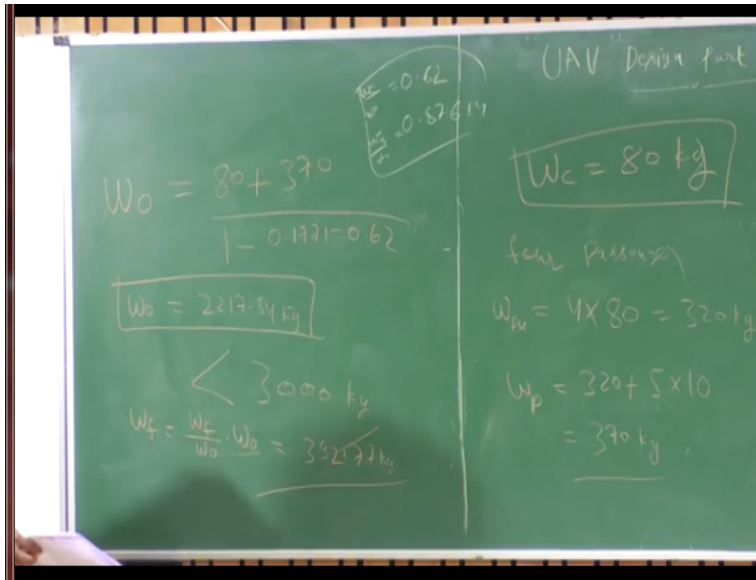 We/Wo = 0.62
= 0.87614
Wo = 80 + 370
1 - 0.1771 - 0.62
Wo = 2217.84 kg
< 3000 kg
Wf = Wf/Wo . Wo = 392.77 kg
UAV Design Part
Wc = 80 kg
four passenger
= 4 x 80 = 320 kg
Wp = 320 + 5 x 10
= 370 kg